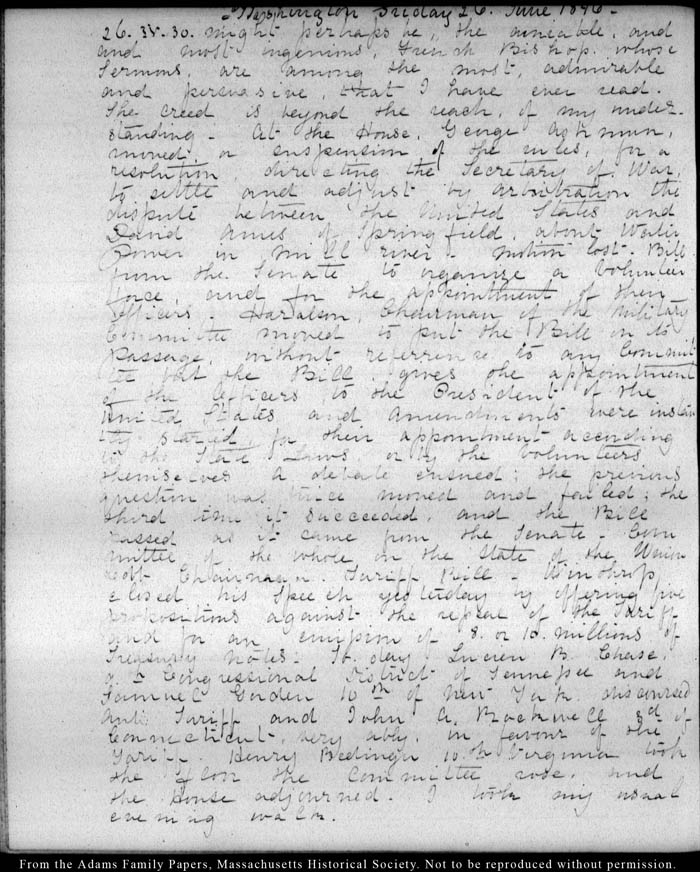 Washington Friday 26. June 1846-
26. IV. 30. might perhaps be, the amiable, and
and most ingenious, French Bishop. whose
Sermons, are among the most, admirable
and persuasive, that I have ever read.
The creed is beyond the reach, of my under-
standing- At the House, George Ashmun,
moved, a suspension of the rules, for a
resolution, directing the Secretary of War,
to settle and adjust by arbitration the
dispute between the United States and
David Ames of Springfield, about Water
Power in mill river- motion lost- Bill
from the Senate to organize a Volunteer
force, and for the appointment of their
officers. Haralson, Chairman of the Military
Committee moved to put the Bill on its
passage, without reference to any Commit-
tee but the Bill, gives the appointment
of the Officers to the President of the
United States, and amendments were instan-
tly started, for their appointment according
to the State Laws or by the Volunteers
themselves a debate ensued; the previous
question was twice moved and failed; the
third time it succeeded, and the Bill
passed as it came from the Senate- Com-
mittee of the whole on the state of the Union
Cobb Chairman. Tariff Bill- Winthrop
closed his Speech yesterday by offering five
propositions against the repeal of the Tariff
and for an emission of 8. or 10. millions of
Treasury notes- To day Lucien B. Chase,
Congressional District of Tennessee and
Samuel Gordon 10th of New York discoursed
anti Tariff and John A. Rockwell 3d. of
Connecticut, very ably, in favour of the
Tariff. Henry Bedinger 10th Virginia took
the floor the Committee rose. and
the House adjourned. I took my usual
evening walk.
From the Adams Family Papers, Massachusetts Historical Society. Not to be reproduced without permission.